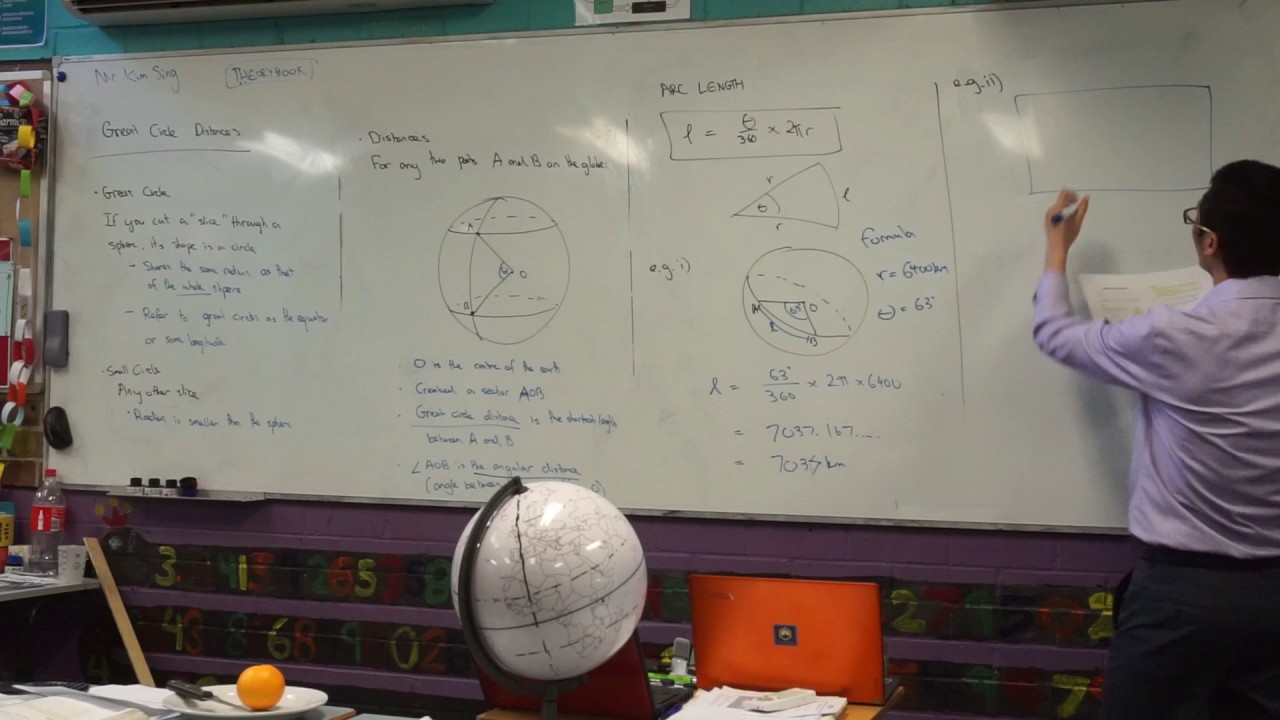 Mr Kim Sing
THEORY BOOK
Great Circle Distances
· Great Circle
If you cut a "slice" through a
sphere, its shape is a circle
- Shares the same radius as that
of the whole sphere
- Refer to great circles as the equator
or some longitude
· Small Circle
Any other slice
Radius is smaller than the sphere
· Distances
For any two points A and B on the globe:
A
θ
O
B
· O is the centre of the earth
· Created a sector AOB
· Great circle distance is the shortest length
between A and B
· ∠AOB is the angular distance
(angle between
ARC LENGTH
l = θ/360 × 2πr
r
θ
l
r
e.g. i)
A
63°
O
l
B
formula
r = 6400km
θ = 63°
l = 63°/360 × 2π × 6400
= 7037.167....
= 7037 km
e.g. ii)
3